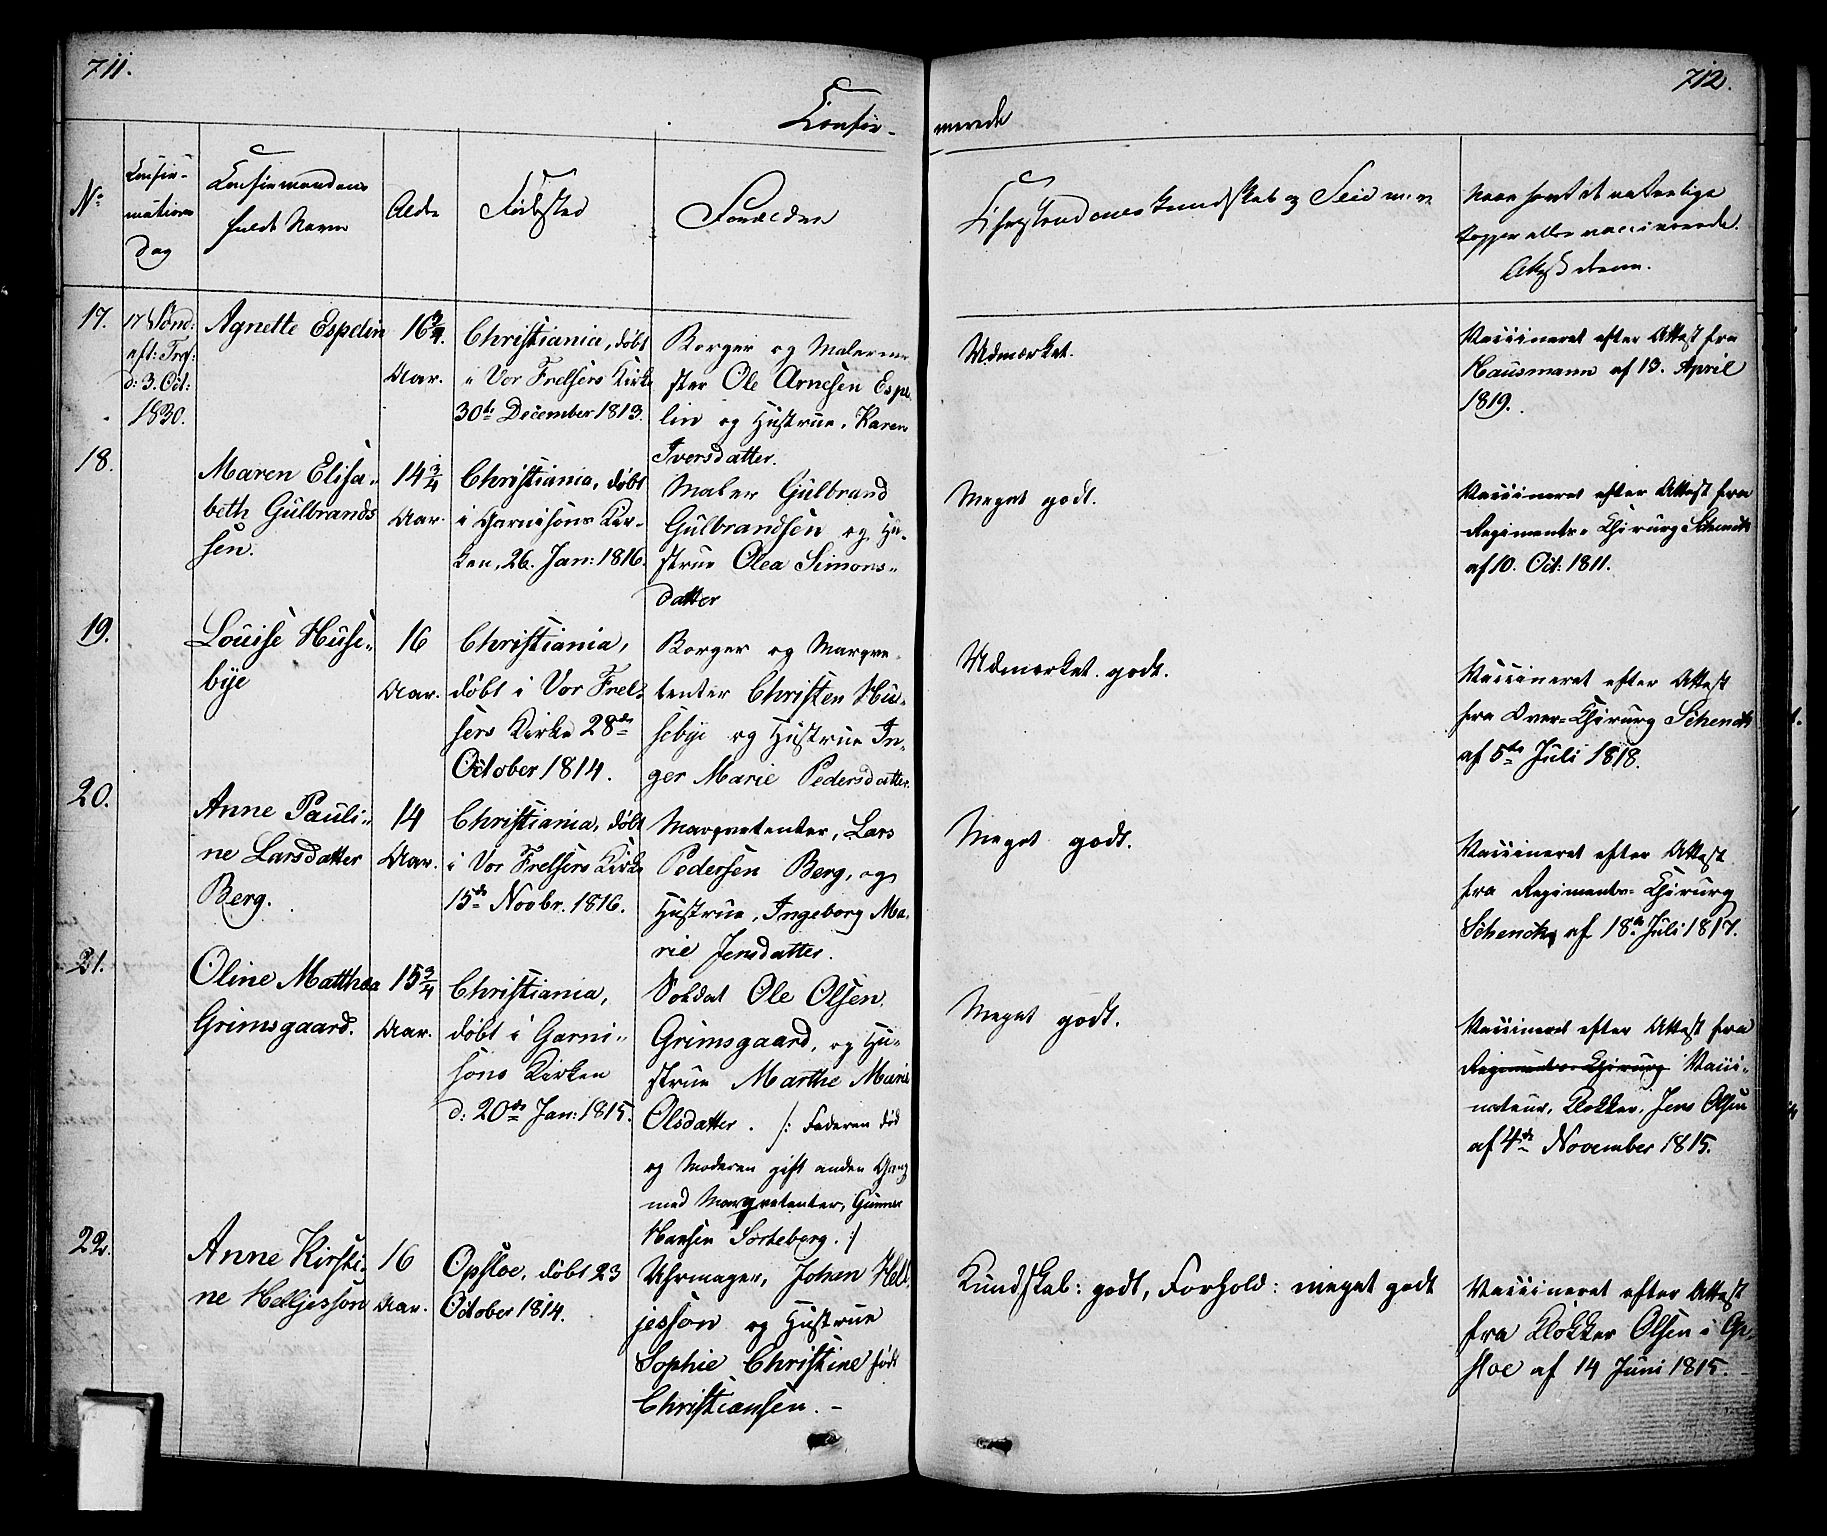 711.
712.
Confir-
merede
No
Confir-
mations
Dag
Confirmandens
fulde Navn
Alder
Fødested
Forældre
Kundskab og
Naar havt de naturlige
Kopper eller vaccinerede.
Attest derom.
17.
17 Sönd:
eft: Tref:
d: 3. Oct:
1830.
Agnette Espelin
16 3/4
Aar.
Christiania, döbt
i Vor Frelsers Kirke
30te December 1813.
Borger og Malerme-
ster Ole Arnesen Espe-
lin og Hustrue, Karen
Iversdatter.
Udmærket.
Vaccineret efter Attest fra
Hausmann af 13. April
1819.
18.
Maren Elisa-
beth Gulbrand-
sen.
14 3/4
Aar.
Christiania, döbt
i Garnisons Kir-
ken, 26. Jan: 1816.
Maler Gulbrand
Gulbrandsen og Hu-
strue Olea Simons-
datter
Meget godt.
Vaccineret efter Attest fra
Regiments-Chirurg Schenck
af 10. Oct: 1811.
19.
Louise Huse-
bye
16
Aar.
Christiania,
döbt i Vor Frel-
sers Kirke 28de
October 1814.
Borger og Marque-
tenter Christen Hu-
sebye og Hustrue In-
ger Marie Pedersdatter.
Udmærket godt.
Vaccineret efter Attest
fra Over-Chirurg Schenck
af 5te Juli 1818.
20.
Anne Pauli-
ne Larsdatter
Berg.
14
Aar.
Christiania, döbt
i Vor Frelsers Kirke
15de Novbr. 1816.
Marquetenter, Lars
Pedersen Berg, og
Hustrue, Ingeborg Ma-
rie Jensdatter.
Meget godt.
Vaccineret efter Attest
fra Regiments-Chirurg
Schenck af 18de Juli 1817.
21.
Oline Matthea
Grimsgaard.
15 3/4
Aar.
Christiania,
döbt i Garni-
sons Kirken
d: 20de Jan: 1815.
Soldat Ole Olsen
Grimsgaard, og Hu-
strue Marthe Marie
Olsdatter. /: Faderen död
og Moderen gift anden Gang
med Marquetenter, Gunner
Hansen Sorteberg. :/
Meget godt.
Vaccineret efter Attest fra
Regiments-Chirurg Vacci-
nateur, Klokker, Jens Olsen
af 4de November 1815.
22.
Anne Kirsti-
ne Helljesson
16
Aar.
Opsloe, döbt 23
October 1814.
Uhrmager, Johan Hell-
jesson og Hustrue
Sophie Christine födt
Christiansen. -
Kundskab: godt, Forhold: meget godt
Vaccineret efter Attest
fra Klokker Olsen i Op-
sloe af 14 Juni 1815. -